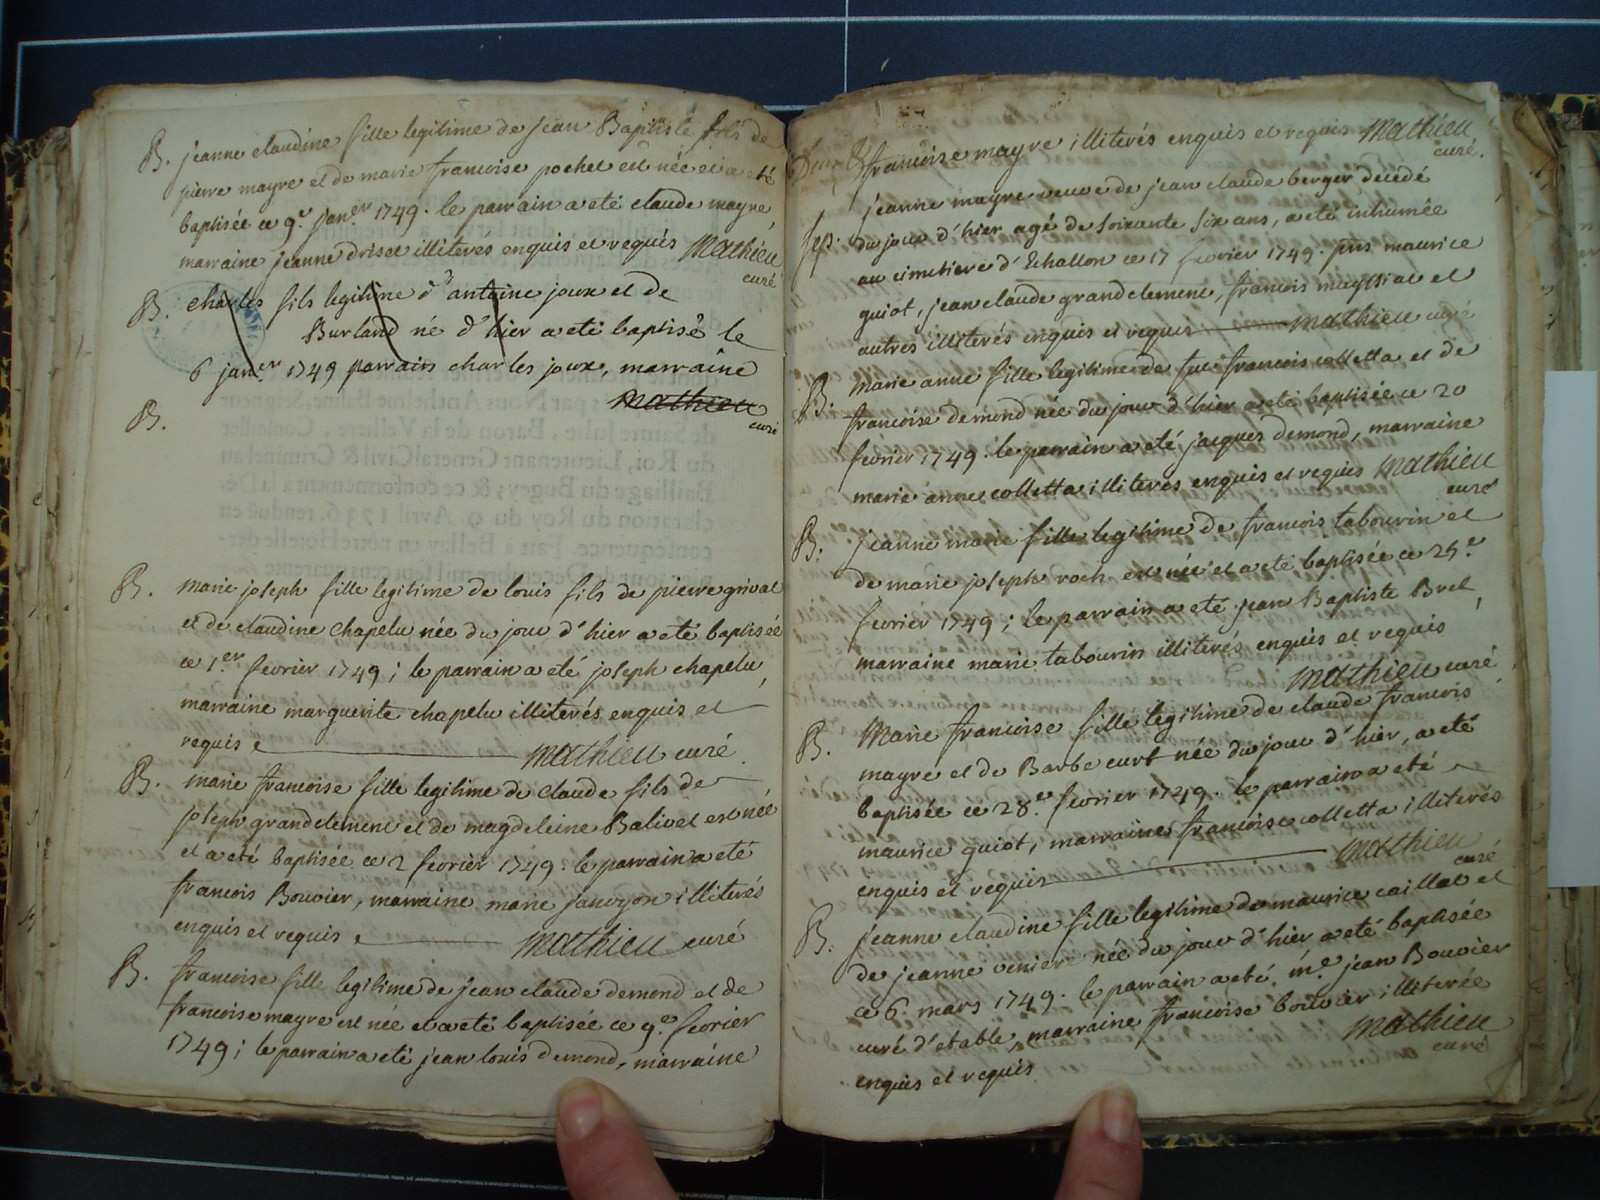 B. jeanne claudine fille legitime de jean Baptiste fils de
pierre mayre et de marie francoise pochet est née et a eté
baptisée ce 9.e jan.er 1749. le parrain a eté claude mayre,
marraine jeanne driset illiterés enquis et requis Mathieu
curé
B. charles fils legitime d' antoine joux et de
Burland né d' hier a eté baptisé le
6 jan.er 1749 parrain charles joux, marraine
Mathieu
curé
B.
B. marie joseph fille legitime de louis fils de pierre grivat
et de claudine chapelu née du jour d' hier a eté baptisée
ce 1.er fevrier 1749; le parrain a eté joseph chapelu,
marraine marguerite chapelu illiterés enquis et
requis Mathieu curé
B. marie francoise fille legitime de claude fils de
joseph grandclement et de magdeleine Balivet est née
et a eté baptisée ce 2 fevrier 1749. le parrain a eté
francois Bouvier, marraine marie illiterés
enquis et requis Mathieu curé
B. francoise fille legitime de jean claude demond et de
francoise mayre est née et a eté baptisée ce 9.e fevrier
1749; le parrain a eté jean louis demond, marraine
francoise mayre illiterés enquis et requis Mathieu
curé.
jeanne mayre veuve de jean claude berger décédé
sep. du jour d' hier agé de soixante six ans, a eté inhumée
au cimetiere d' Echallon ce 17 fevrier 1749. pns maurice
guiot, jean claude grandclement, francois et
autres illiterés enquis et requis Mathieu curé
B. marie anne fille legitime de feu francois colletta et de
francoise demond née du jour d' hier a eté baptisée ce 20
fevrier 1749. le parrain a eté jacques demond, marraine
marie anne colletta illiterés enquis et requis Mathieu
curé
B. jeanne marie fille legitime de francois tabourin et
de marie joseph roch est née et a eté baptisée ce 25.e
fevrier 1749; le parrain a eté jean Baptiste Bret,
marraine marie tabourin illiterés enquis et requis
Mathieu curé
B. Marie francoise fille legitime de claude francois
mayre et de Barbe curt née du jour d' hier, a eté
baptisée ce 28.e fevrier 1749. le parrain a eté
maurice guiot, marraine francoise colletta illiterés
enquis et requis Mathieu
curé
B. jeanne claudine fille legitime de maurice caillat et
de jeanne venier née du jour d' hier a eté baptisée
ce 6. mars 1749. le parrain a eté m.e jean Bouvier
curé d' etable, marraine francoise bouvier illiterée
enquis et requis Mathieu
curé